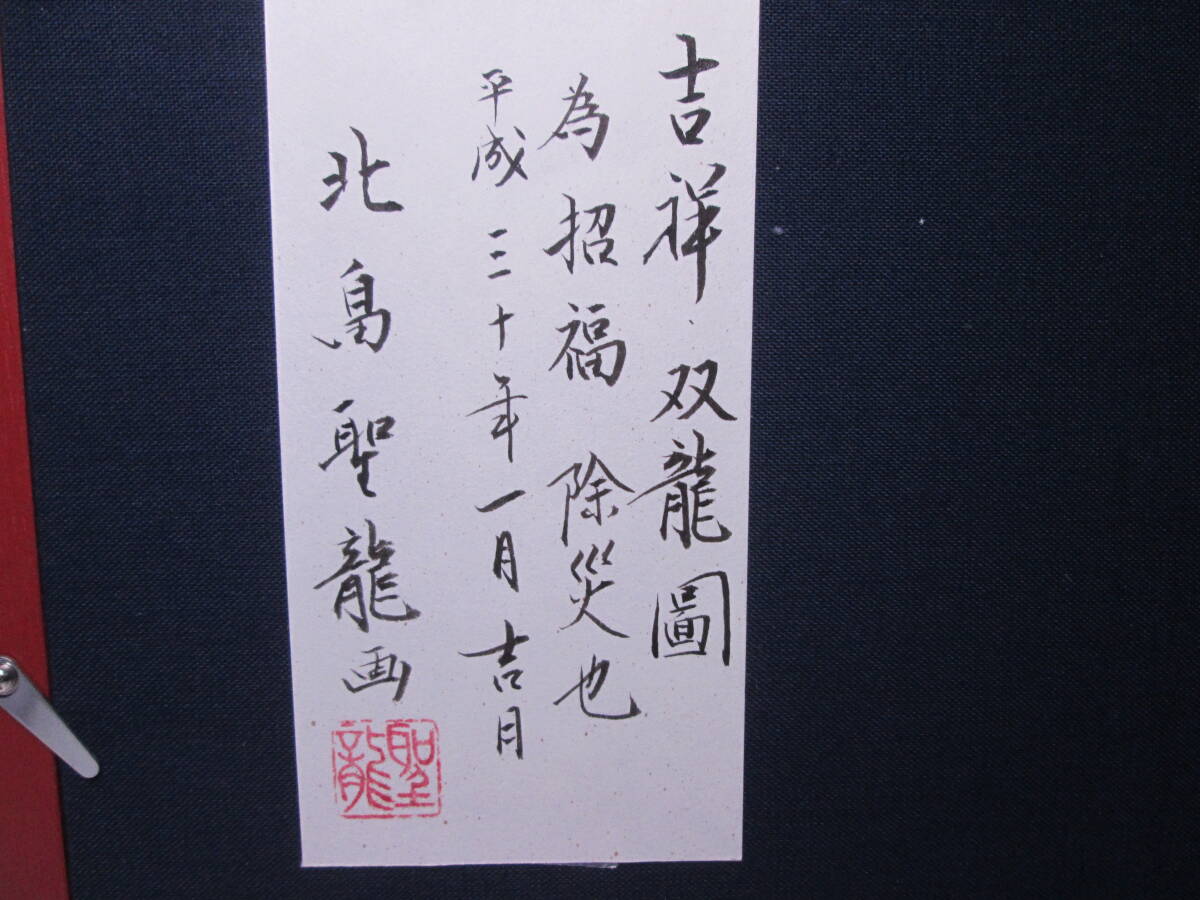 吉祥双龍圖
為招福 除災也
平成三十年一月吉月
北島聖龍画
聖龍